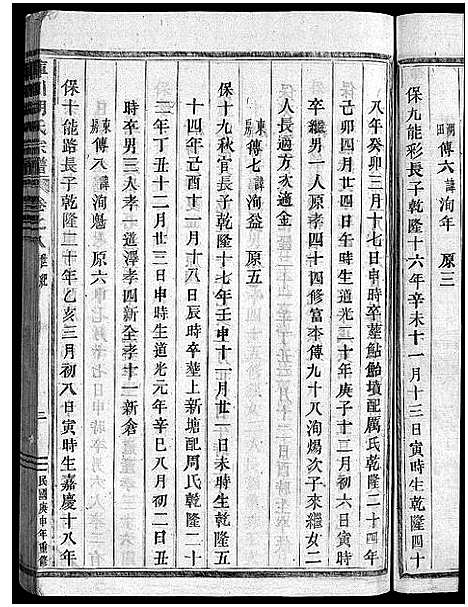 湖田 傳六 諱洵年 原三
保九能彩長子乾隆十六年辛未十一月十三日寅時生乾隆四十
八年癸卯三月十七日申時卒葬鮎飴墳配厲氏乾隆二十四年
己卯四月廿四日午時生道光二十年庚子十二月初六日寅時
卒繼男一人原孝四十四修富本傳九十八洵煬次子來繼女二
人長適方次適金
東厢 傳七 諱洵益 原五
保十九秋官長子乾隆十七年壬申十一月廿一日未時生乾隆五
十四年己酉十一月十八日辰時卒葬上新塘配周氏乾隆二十
二年丁丑十二月廿三日申時生道光元年辛巳八月初二日丑
時卒男三人孝一道澤孝四新全孝十一新倉
東厢 傳八 諱洵魁 原六
保十能路長子乾隆二十年乙亥三月初八日寅時生嘉慶十八年
胡氏宗譜
三
民國庚申年重修